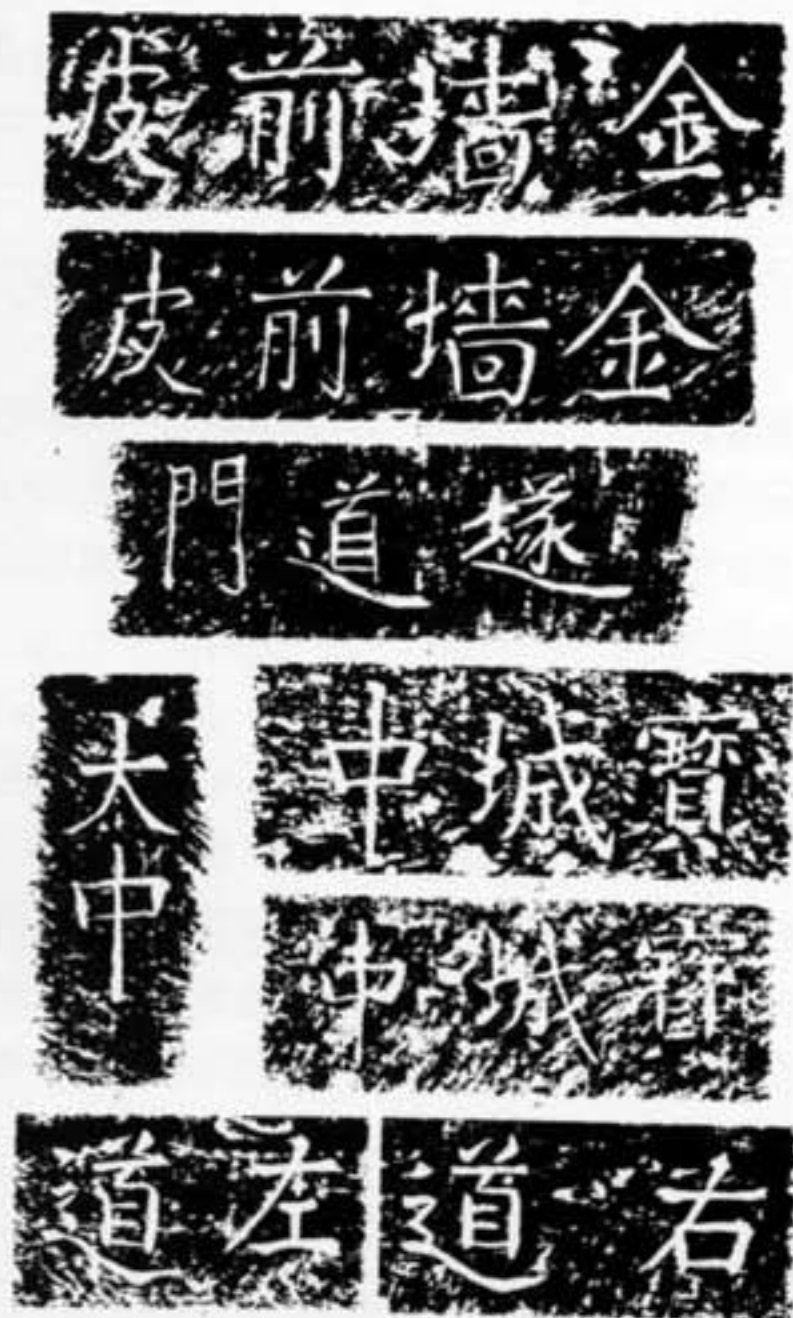 金墻前皮
金墻前皮
隧道門
寶城中
寶城中
大中
右道
左道